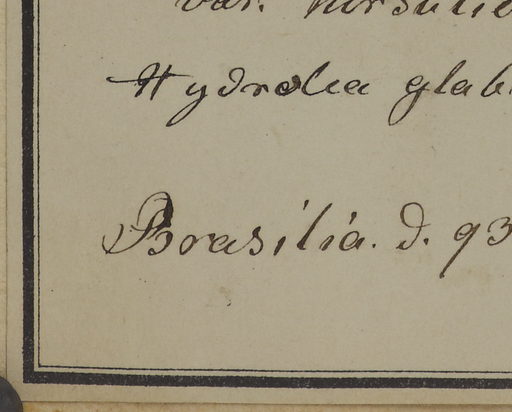 var. hirsutio
Hydrolea glab
Brasilia. d. 93